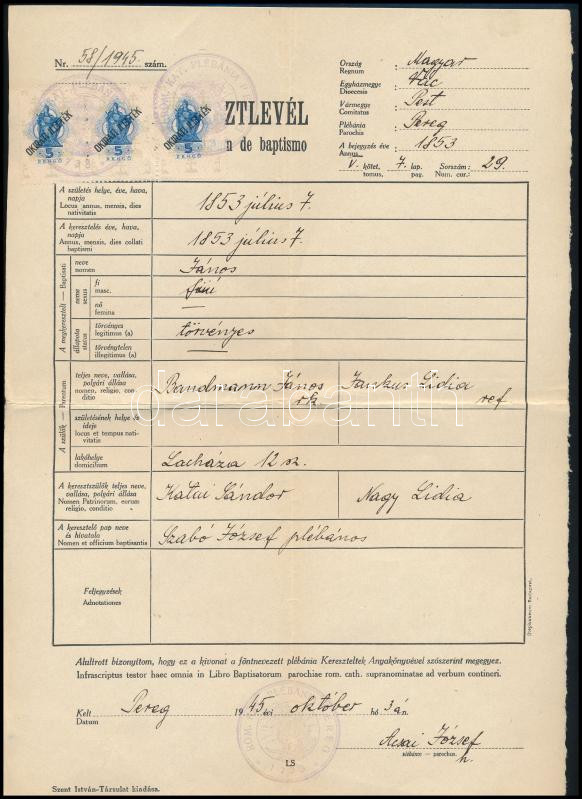 Nr. 58/1945 szám.
Ország Regnum : Magyar
Egyházmegye Dioecesis : Vác
Vármegye Comitatus : Pest
Plébánia Parochia : Pereg
A bejegyzés éve Annus : 1853
V. kötet, tomus, 7. lap. pag. Sorszám: Num. cur.: 29.
OKIRATI ILLETÉK
OKIRATI ILLETÉK
OKIRATI ILLETÉK
5 PENGŐ
5 PENGŐ
5
ZTLEVÉL
n de baptismo
A születés helye, éve, hava, napja
Locus annus, mensis, dies nativitatis
1853 július 7.
A keresztelés éve, hava, napja
Annus, mensis, dies collati baptismi
1853 július 7.
A megkeresztelt — Baptisati
neve
nomen
János
neme
sexus
fi
masc.
fiú
nő
femina
állapota
status
törvényes
legitimus (a)
törvényes
törvénytelen
illegitimus (a)
A szülők — Parentum
teljes neve, vallása, polgári állása
nomen, religio, conditio
Bandmann János rk
Jankus Lidia ref
születésének helye és ideje
locus et tempus nativitatis
lakóhelye
domicilium
Lacháza 12 sz.
A keresztszülők teljes neve, vallása, polgári állása
Nomen Patrinorum, eorum religio, conditio
Katai Sándor
Nagy Lidia
A keresztelő pap neve és hivatala
Nomen et officium baptisantis
Szabó József plébános
Feljegyzések
Adnotationes
darabanth
Stephaneum Budapest.
Alulírott bizonyítom, hogy ez a kivonat a föntnevezett plébánia Kereszteltek Anyakönyvével szószerint megegyez.
Infrascriptus testor haec omnia in Libro Baptisatorum parochiae rom. cath. supranominatae ad verbum contineri.
Kelt Datum Pereg 1945 évi október hó 3 án.
József
plébános — parochus.
h.
LS
Szent István-Társulat kiadása.